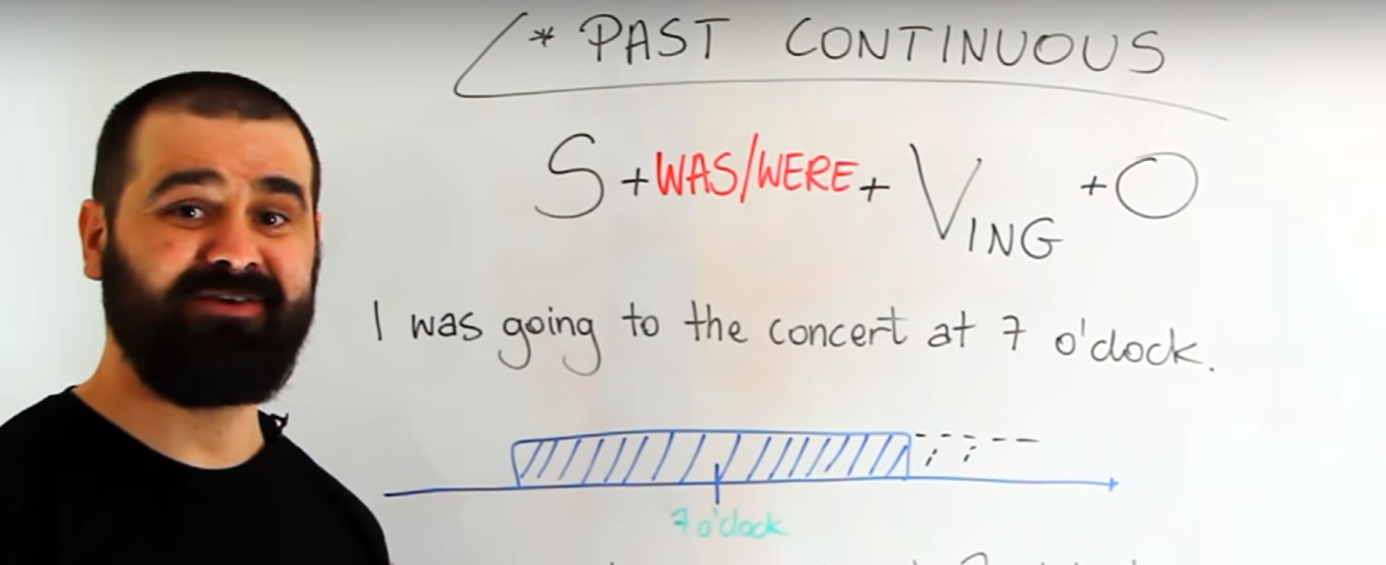 * PAST CONTINUOUS
S + WAS/WERE + VING + O
I was going to the concert at 7 o'clock.
7 o'clock